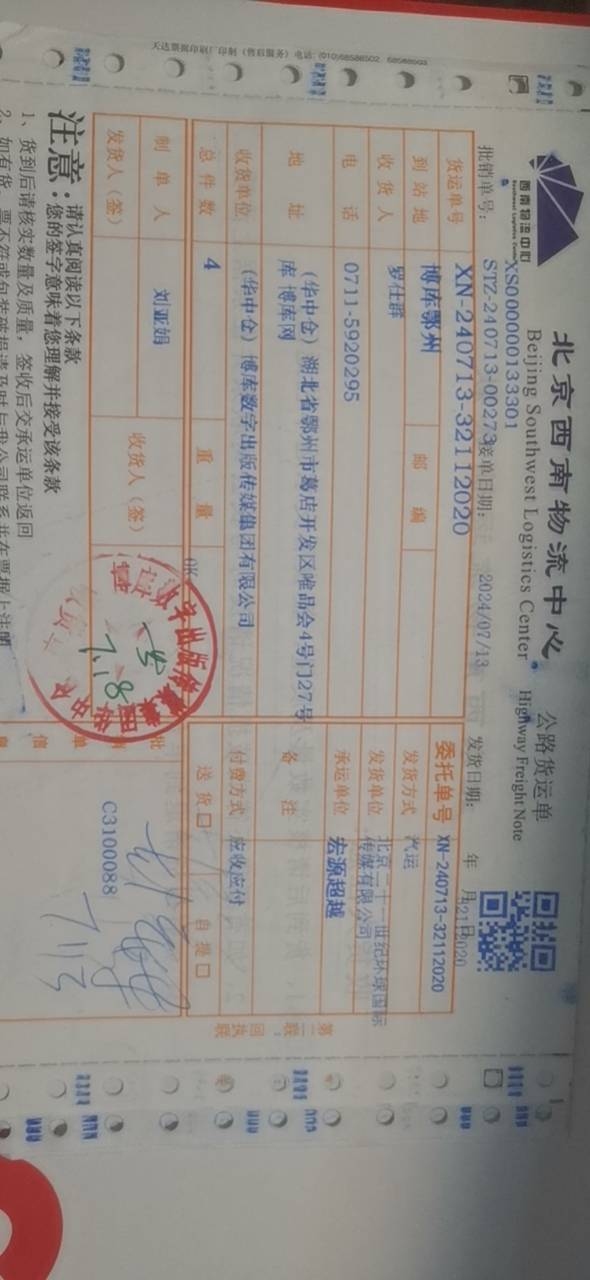 天达票据印刷厂印制（售后服务）电话：(010)68588502 68588503
西南物流中心
Southwest Logistics Center
北京西南物流中心 公路货运单
Beijing Southwest Logistics Center Highway Freight Note
XS000000133301
批销单号： STZ-240713-00273 接单日期： 2024/07/13 发货日期： 年 月 日
货运单号 XN-240713-32112020 委托单号 XN-240713-32112020
到站地 博库鄂州 邮编 发货方式 汽运
收货人 罗仕群 发货单位 北京二十一世纪环球国际传媒有限公司
电话 0711-5920295 承运单位 宏源超越
地址 (华中仓) 湖北省鄂州市葛店开发区唯品会4号门27号
库 博库网 备注
收货单位 (华中仓) 博库数字出版传媒集团有限公司 付费方式 应收应付
总件数 4 重量 0K 送货□ 自提□
制单人 刘亚娟 收货人（签）
发货人（签）
C3100088
7.18
7.13
第二联：回执联
注意：请认真阅读以下条款
您的签字意味着您理解并接受该条款
1、货到后请核实数量及质量，签收后交承运单位返回